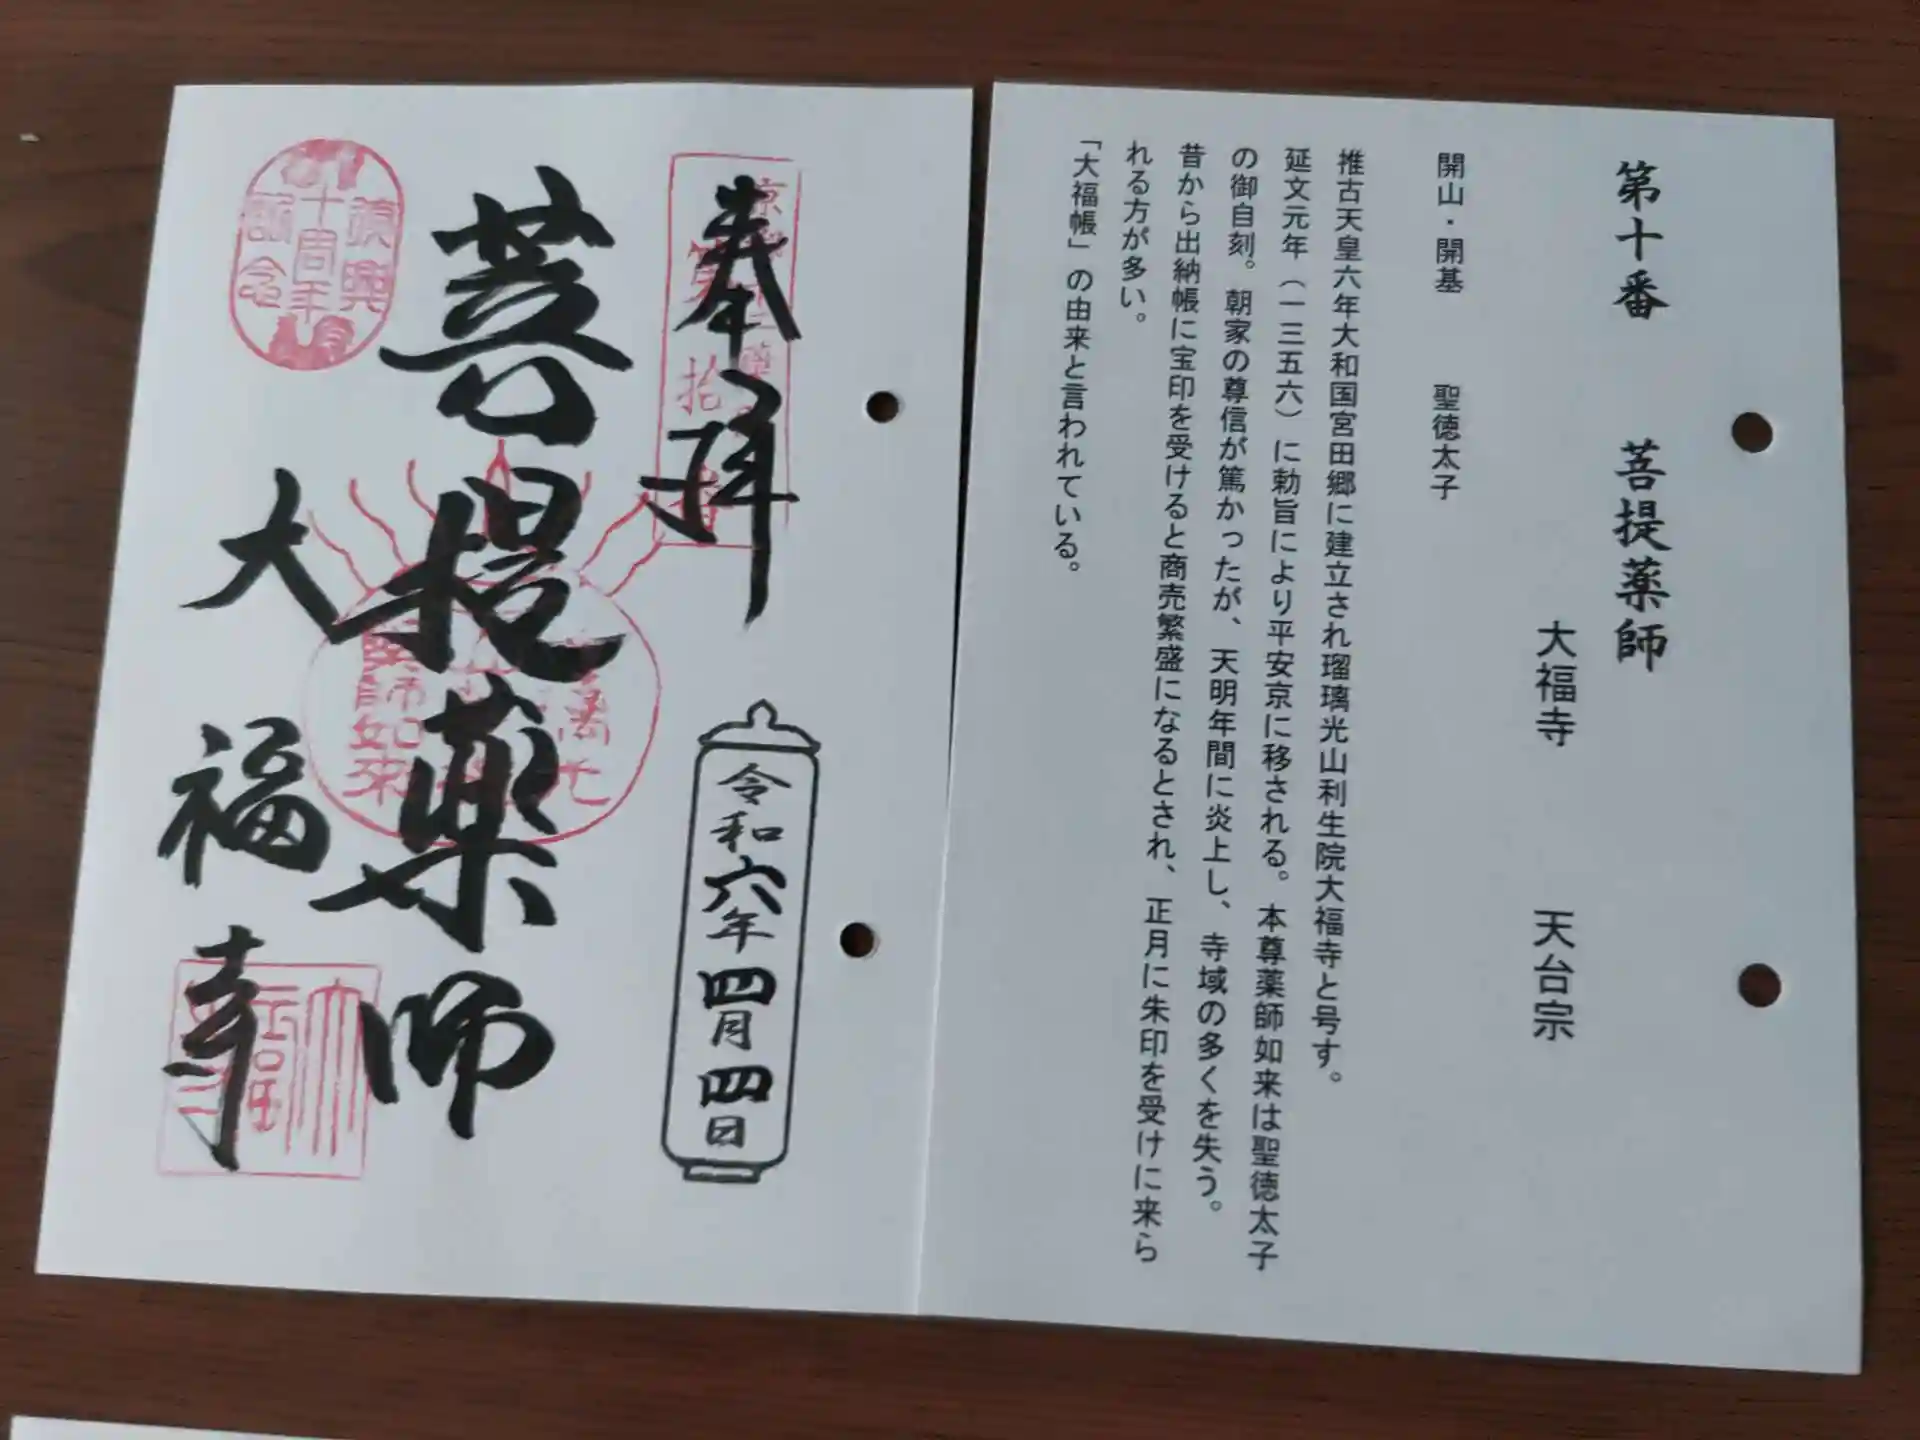 第十番　菩提薬師
大福寺　天台宗
開山・開基　聖徳太子
推古天皇六年大和国宮田郷に建立され瑠璃光山利生院大福寺と号す。
延文元年（一三五六）に勅旨により平安京に移される。本尊薬師如来は聖徳太子
の御自刻。朝家の尊信が篤かったが、天明年間に炎上し、寺域の多くを失う。
昔から出納帳に宝印を受けると商売繁盛になるとされ、正月に朱印を受けに来ら
れる方が多い。
「大福帳」の由来と言われている。
奉拝
第拾番
令和六年四月四日
菩提薬師
大福寺
復興
十周年
記念
薬師如来